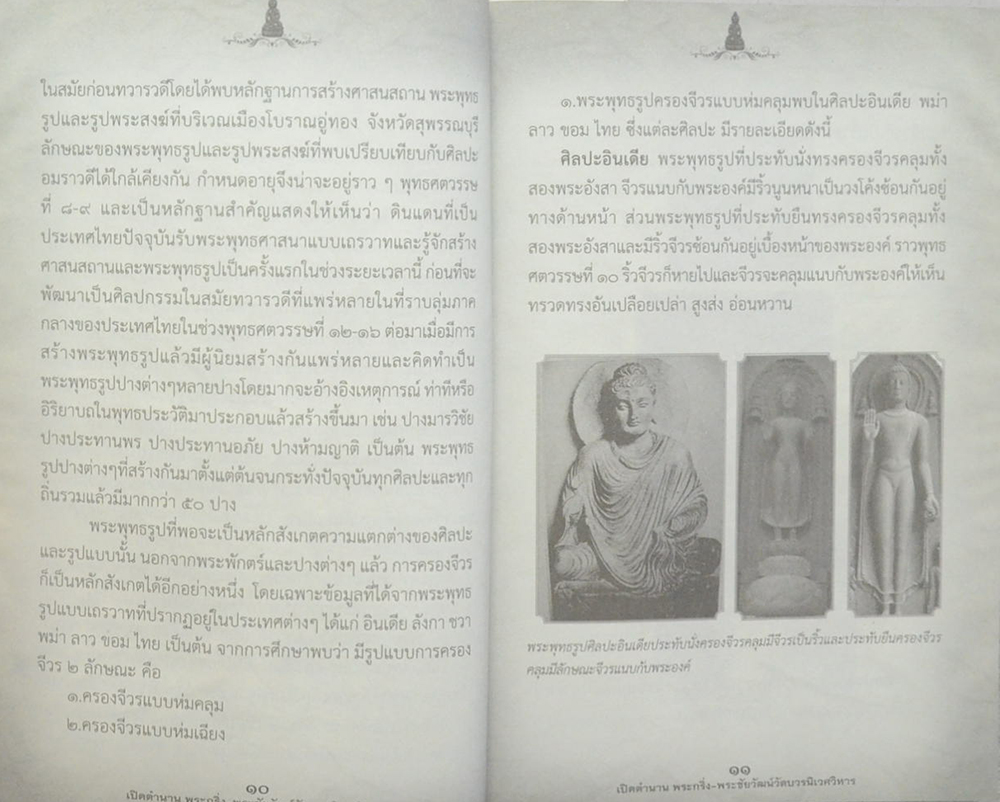 ในสมัยก่อนทวารวดีโดยได้พบหลักฐานการสร้างศาสนสถาน พระพุทธ
รูปและรูปพระสงฆ์ที่บริเวณเมืองโบราณอู่ทอง จังหวัดสุพรรณบุรี
ลักษณะของพระพุทธรูปและรูปพระสงฆ์ที่พบเปรียบเทียบกับศิลปะ
อมราวดีได้ใกล้เคียงกัน กำหนดอายุจึงน่าจะอยู่ราว ๆ พุทธศตวรรษ
ที่ ๘-๙ และเป็นหลักฐานสำคัญแสดงให้เห็นว่า ดินแดนที่เป็น
ประเทศไทยปัจจุบันรับพระพุทธศาสนาแบบเถรวาทและรู้จักสร้าง
ศาสนสถานและพระพุทธรูปเป็นครั้งแรกในช่วงระยะเวลานี้ ก่อนที่จะ
พัฒนาเป็นศิลปกรรมในสมัยทวารวดีที่แพร่หลายในที่ราบลุ่มภาค
กลางของประเทศไทยในช่วงพุทธศตวรรษที่ ๑๒-๑๖ ต่อมาเมื่อมีการ
สร้างพระพุทธรูปแล้วมีผู้นิยมสร้างกันแพร่หลายและคิดทำเป็น
พระพุทธรูปปางต่างๆหลายปางโดยมากจะอ้างอิงเหตุการณ์ ท่าทีหรือ
อิริยาบถในพุทธประวัติมาประกอบแล้วสร้างขึ้นมา เช่น ปางมารวิชัย
ปางประทานพร ปางประทานอภัย ปางห้ามญาติ เป็นต้น พระพุทธ
รูปปางต่างๆที่สร้างกันมาตั้งแต่ต้นจนกระทั่งปัจจุบันทุกศิลปะและทุก
ถิ่นรวมแล้วมีมากกว่า ๕๐ ปาง
พระพุทธรูปที่พอจะเป็นหลักสังเกตความแตกต่างของศิลปะ
และรูปแบบนั้น นอกจากพระพักตร์และปางต่างๆ แล้ว การครองจีวร
ก็เป็นหลักสังเกตได้อีกอย่างหนึ่ง โดยเฉพาะข้อมูลที่ได้จากพระพุทธ
รูปแบบเถรวาทที่ปรากฏอยู่ในประเทศต่างๆ ได้แก่ อินเดีย ลังกา ชวา
พม่า ลาว ขอม ไทย เป็นต้น จากการศึกษาพบว่า มีรูปแบบการครอง
จีวร ๒ ลักษณะ คือ
๑.ครองจีวรแบบห่มคลุม
๒.ครองจีวรแบบห่มเฉียง
๑๐
เปิดตำนาน พระกริ่ง-
๑.พระพุทธรูปครองจีวรแบบห่มคลุมพบในศิลปะอินเดีย พม่า
ลาว ขอม ไทย ซึ่งแต่ละศิลปะ มีรายละเอียดดังนี้
ศิลปะอินเดีย พระพุทธรูปที่ประทับนั่งทรงครองจีวรคลุมทั้ง
สองพระอังสา จีวรแนบกับพระองค์มีริ้วนูนหนาเป็นวงโค้งซ้อนกันอยู่
ทางด้านหน้า ส่วนพระพุทธรูปที่ประทับยืนทรงครองจีวรคลุมทั้ง
สองพระอังสาและมีริ้วจีวรซ้อนกันอยู่เบื้องหน้าของพระองค์ ราวพุทธ
ศตวรรษที่ ๑๐ ริ้วจีวรก็หายไปและจีวรจะคลุมแนบกับพระองค์ให้เห็น
ทรวดทรงอันเปลือยเปล่า สูงส่ง อ่อนหวาน
พระพุทธรูปศิลปะอินเดียประทับนั่งครองจีวรคลุมมีจีวรเป็นริ้วและประทับยืนครองจีวร
คลุมมีลักษณะจีวรแนบกับพระองค์
๑๑
เปิดตำนาน พระกริ่ง-พระชัยวัฒน์วัดบวรนิเวศวิหาร